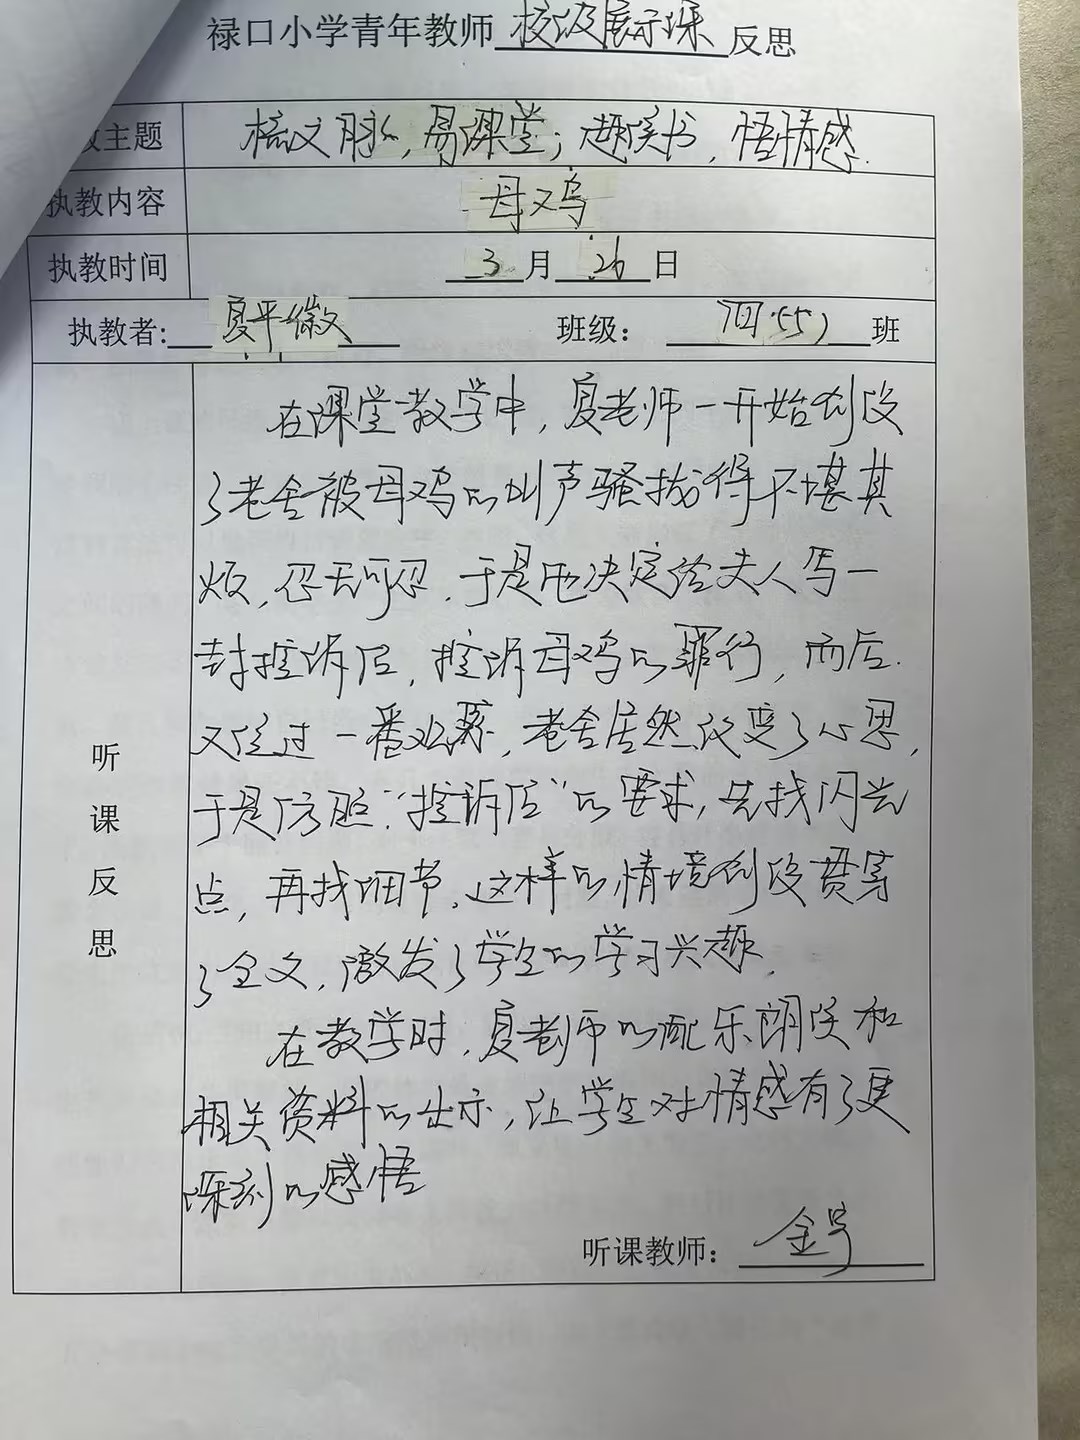 禄口小学青年教师校级展示课反思
教主题 梳文脉，易课堂；趣读书，悟情感.
执教内容 母鸡
执教时间 3月26日
执教者: 夏平徽 班级： 四(5) 班
听课反思
在课堂教学中，夏老师一开始创设
了老舍被母鸡的叫声骚扰得不堪其
烦，忍无可忍，于是他决定给夫人写一
封控诉信，控诉母鸡的罪行，而后
又经过一番观察，老舍居然改变了心思，
于是仿照“控诉信”的要求，先找闪光
点，再找细节，这样的情境创设贯穿
了全文，激发了学生的学习兴趣，
在教学时，夏老师的配乐朗读和
相关资料的出示，让学生对情感有了更
深刻的感悟
听课教师： 金